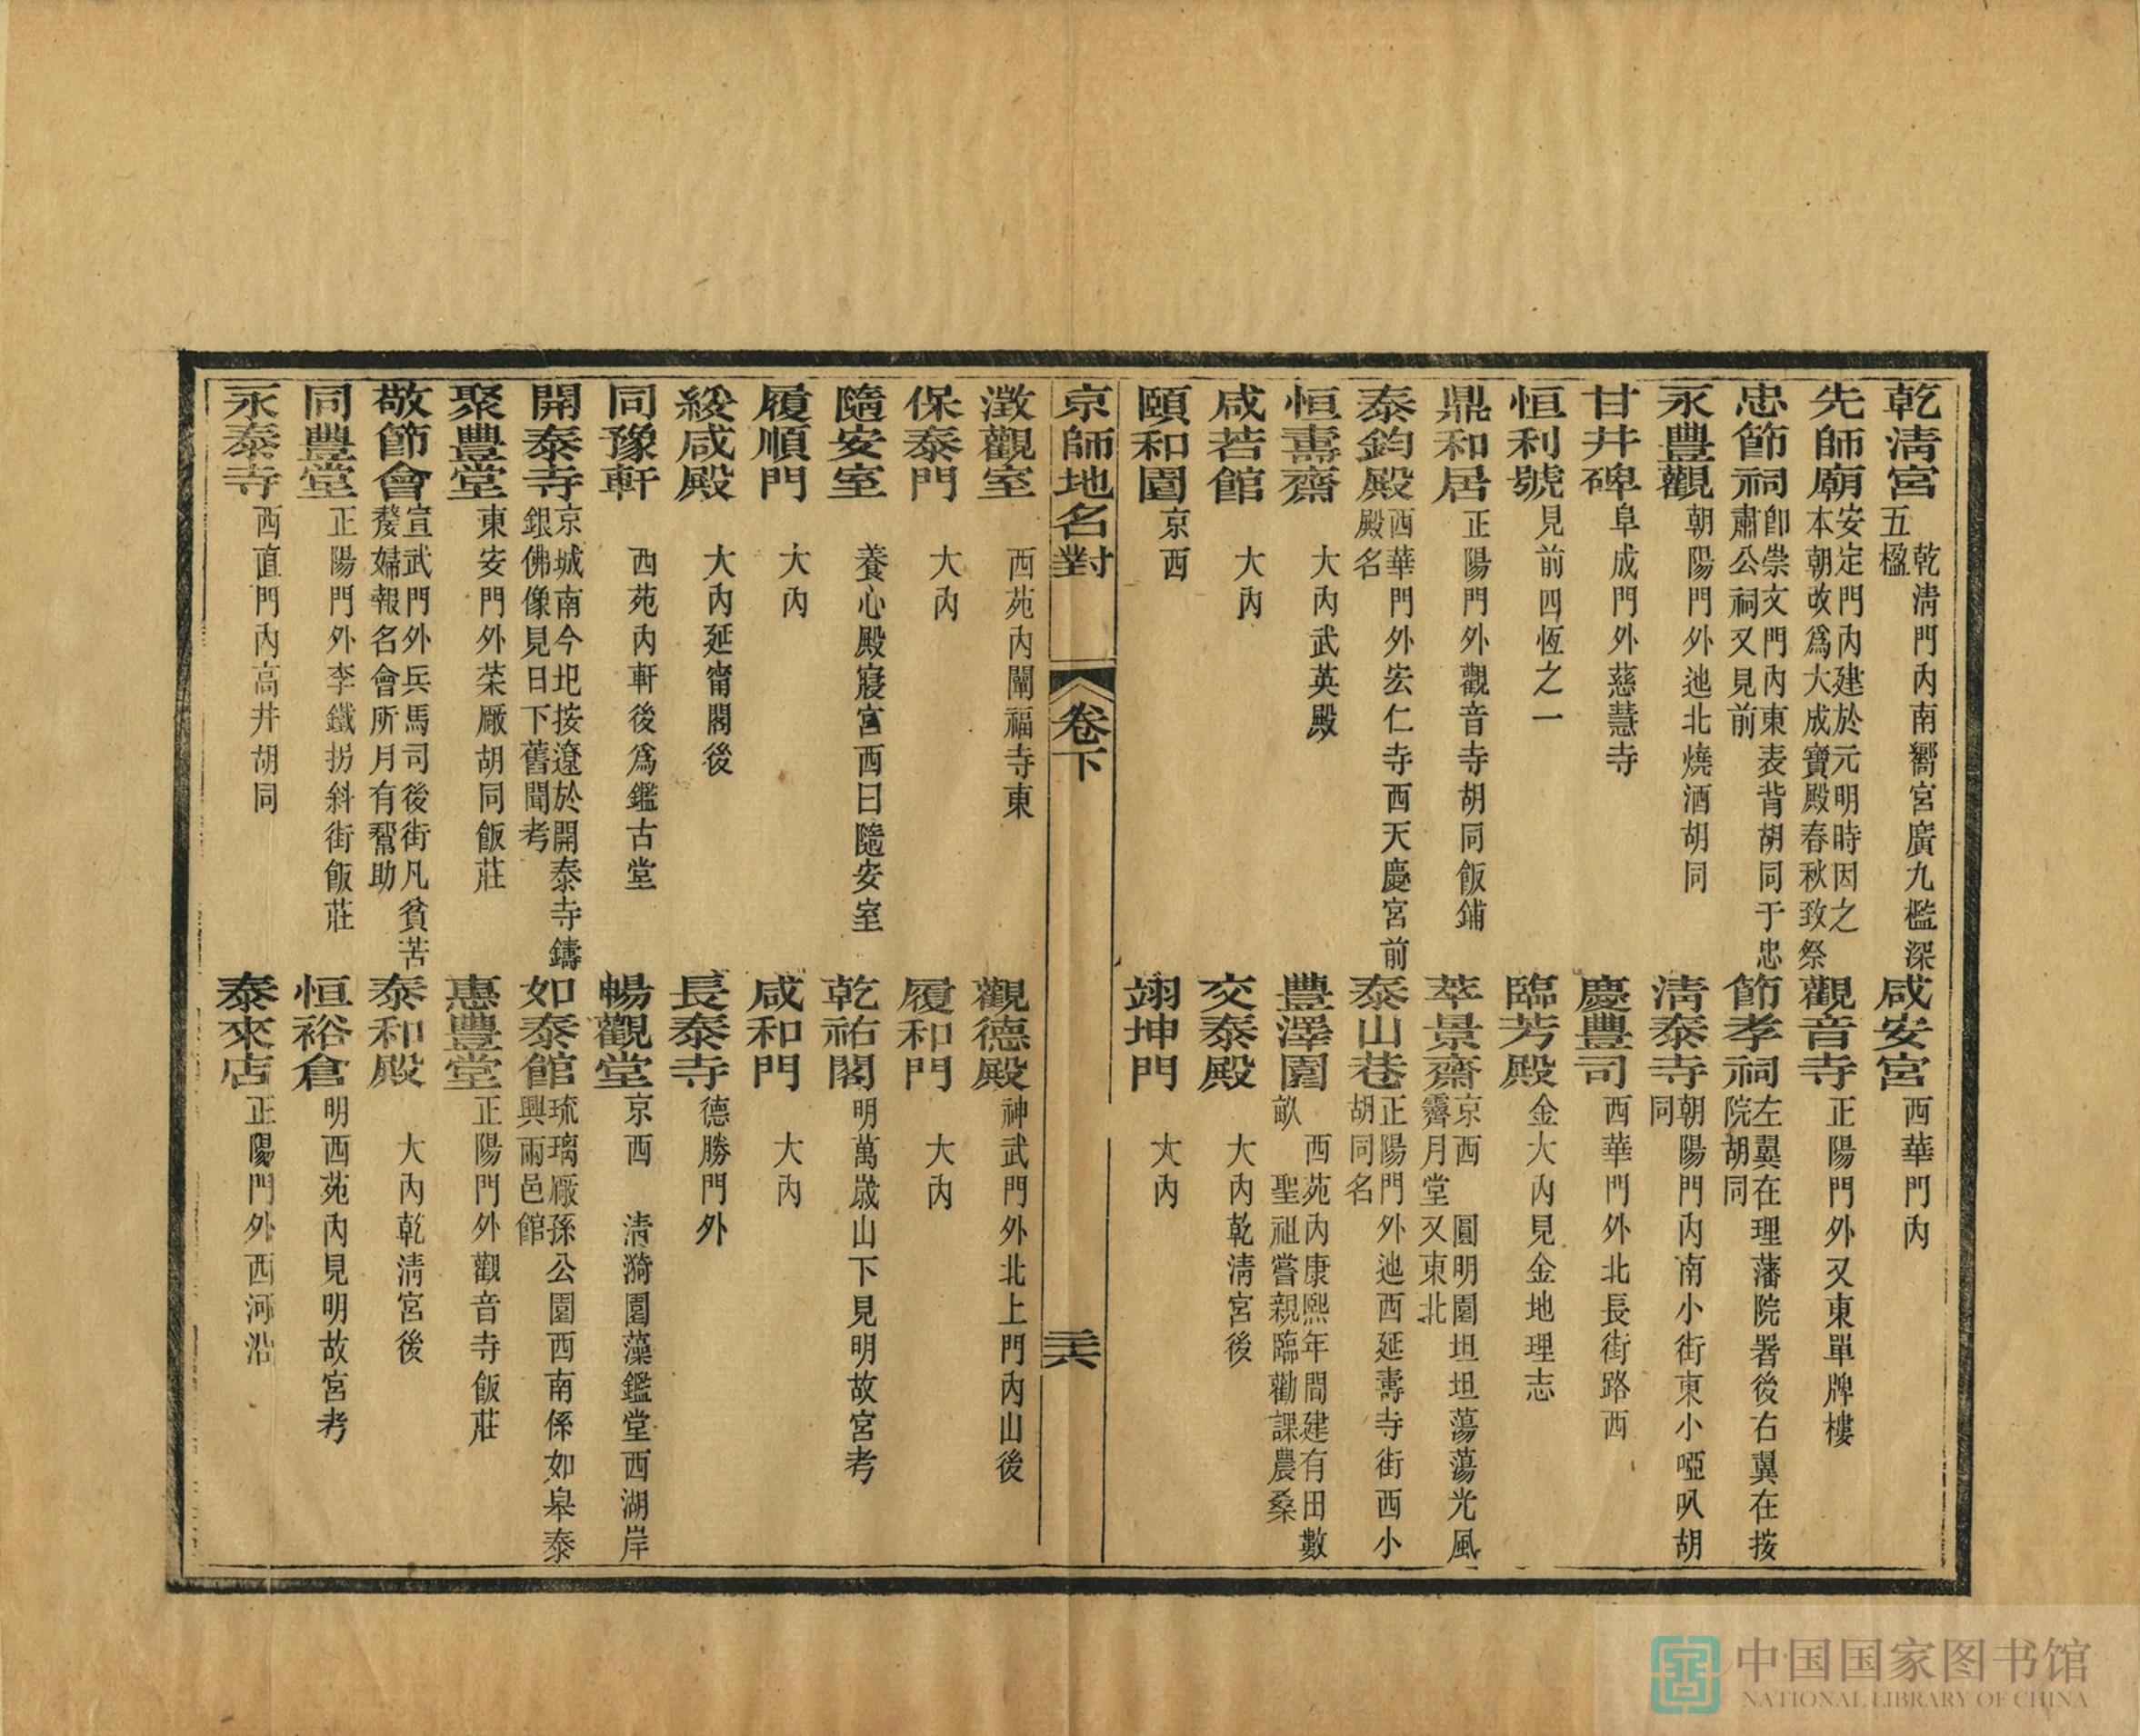 乾淸宮 乾淸門內南嚮宮廣九楹深五楹 咸安宮 西華門內
先師廟 安定門內建於元明時因之本朝改爲大成寶殿春秋致祭 觀音寺 正陽門外又東單牌樓
忠節祠 卽崇文門內東表背胡同于忠肅公祠又見前 節孝祠 左翼在理藩院署後右翼在按院胡同
永豐觀 朝陽門外迤北燒酒胡同 淸泰寺 朝陽門內南小街東小啞叭胡同
甘井碑 阜成門外慈慧寺 慶豐司 西華門外北長街路西
恒利號 見前四恆之一 臨芳殿 金大內見金地理志
鼎和居 正陽門外觀音寺胡同飯鋪 萃景齋 京西 圓明園坦坦蕩蕩光風霽月堂又東北
泰鈞殿 西華門外宏仁寺西天慶宮前殿名 泰山巷 正陽門外迤西延壽寺街西小胡同名
恒壽齋 大內武英殿 豐澤園 西苑內康熙年間建有田數畝 聖祖嘗親臨勸課農桑
咸若館 大內 交泰殿 大內乾淸宮後
頤和園 京西 翊坤門 大內
京師地名對 卷下 三十六
澂觀室 西苑內闡福寺東 觀德殿 神武門外北上門內山後
保泰門 大內 履和門 大內
隨安室 養心殿寢宮西曰隨安室 乾祐閣 明萬歲山下見明故宮考
履順門 大內 咸和門 大內
綏咸殿 大內延甯閣後 長泰寺 德勝門外
同豫軒 西苑內軒後爲鑑古堂 暢觀堂 京西 淸漪園藻鑑堂西湖岸
開泰寺 京城南今圯按遼於開泰寺鑄銀佛像見日下舊聞考 如泰館 琉璃厰孫公園西南係如皋泰興兩邑館
聚豐堂 東安門外菜厰胡同飯莊 惠豐堂 正陽門外觀音寺飯莊
敬節會 宣武門外兵馬司後街凡貧苦嫠婦報名會所月有幫助 泰和殿 大內乾淸宮後
同豐堂 正陽門外李鐵拐斜街飯莊 恒裕倉 明西苑內見明故宮考
永泰寺 西直門內高井胡同 泰來店 正陽門外西河沿
中国国家图书馆
NATIONAL LIBRARY OF CHINA